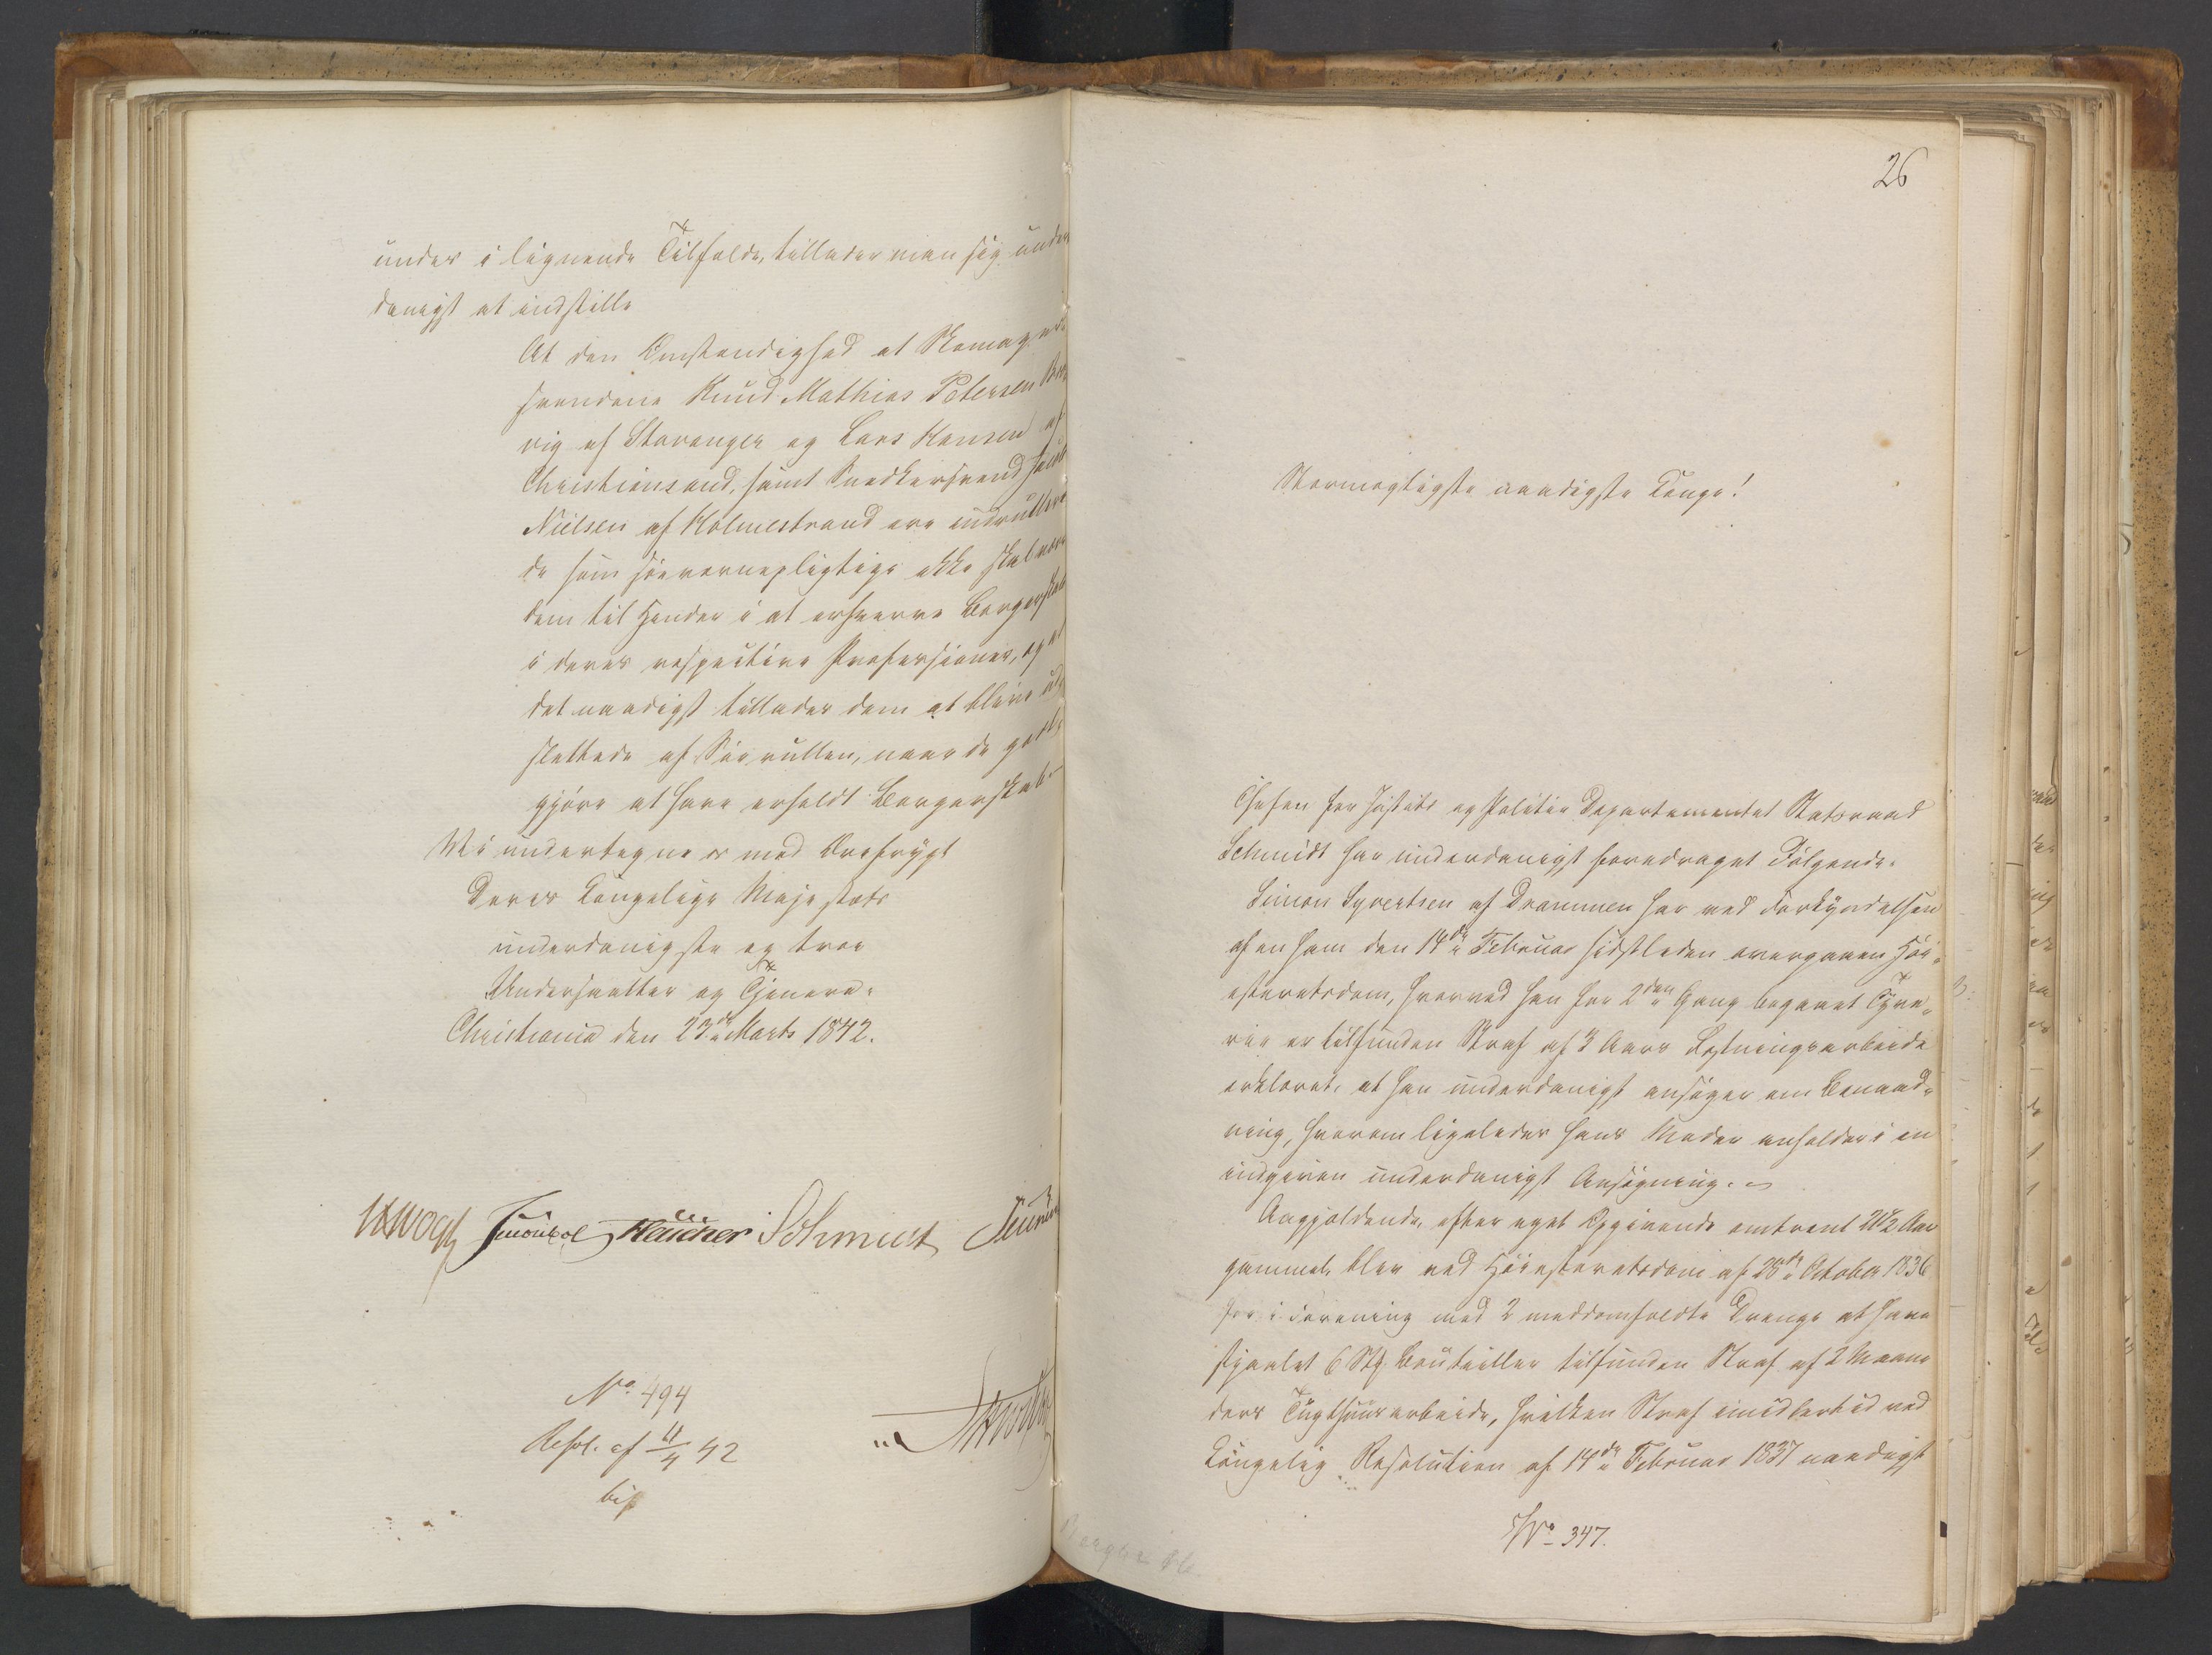 under i lignende Tilfælde, tillader man sig under
danigst at indstille
At den Omstændighed at Skomager
svendene Knud Mathias Petersen
vig af Stavanger og Lars Hansen af
Christiansand, samt Snedkersvend Jacob
Nielsen af Holmestrand ere indrullere
de som søeværnepligtige ikke skal være
dem til Hinder i at erhverve Borgerskab
i deres respective Professioner, og at
det naadigst tillades dem at blive ud
slettede af Søerullen, naar de godt
gjøre at have erholdt Borgerskab.
Vi undertegne os med Ærefrygt
Deres Kongelige Majestæts
underdanigste og troe
Undersaatter og Tjenere.
Christiania den 23de Marts 1842.
Vogt Schmidt
No 494
Resol. af 4/4 42
bif
26
Stormægtigste naadigste Konge!
Chefen for Justits og Politie Departementet Statsraad
Schmidt har underdanigst foredraget Følgende.
Simon Syvertsen af Drammen har ved Forkyndelsen
af en ham den 14de Februar sidstleden overgaaen Høi-
esteretsdom, hvorved han for 2den Gang begaaet Tyve-
rie er tilfunden Straf af 3 Aars Fæstningsarbeide
erklæret, at han underdanigst ansøger om Benaad-
ning, hvorom ligeledes hans Moder anholder i en
indgiven underdanigst Ansøgning.
Angjældende, efter eget Opgivende omtrent 21½ Aar
gammel, blev ved Høiesteretsdom af 28de October 1836
for i Forening med 2 meddomfældte Drenge at have
stjaalet 6 Stk. Bouteiller tilfunden Straf af 2 Maane
ders Tugthuusarbeide, hvilken Straf imidlertid ved
Kongelig Resolution af 14de Februar 1837 naadigst
No 347.